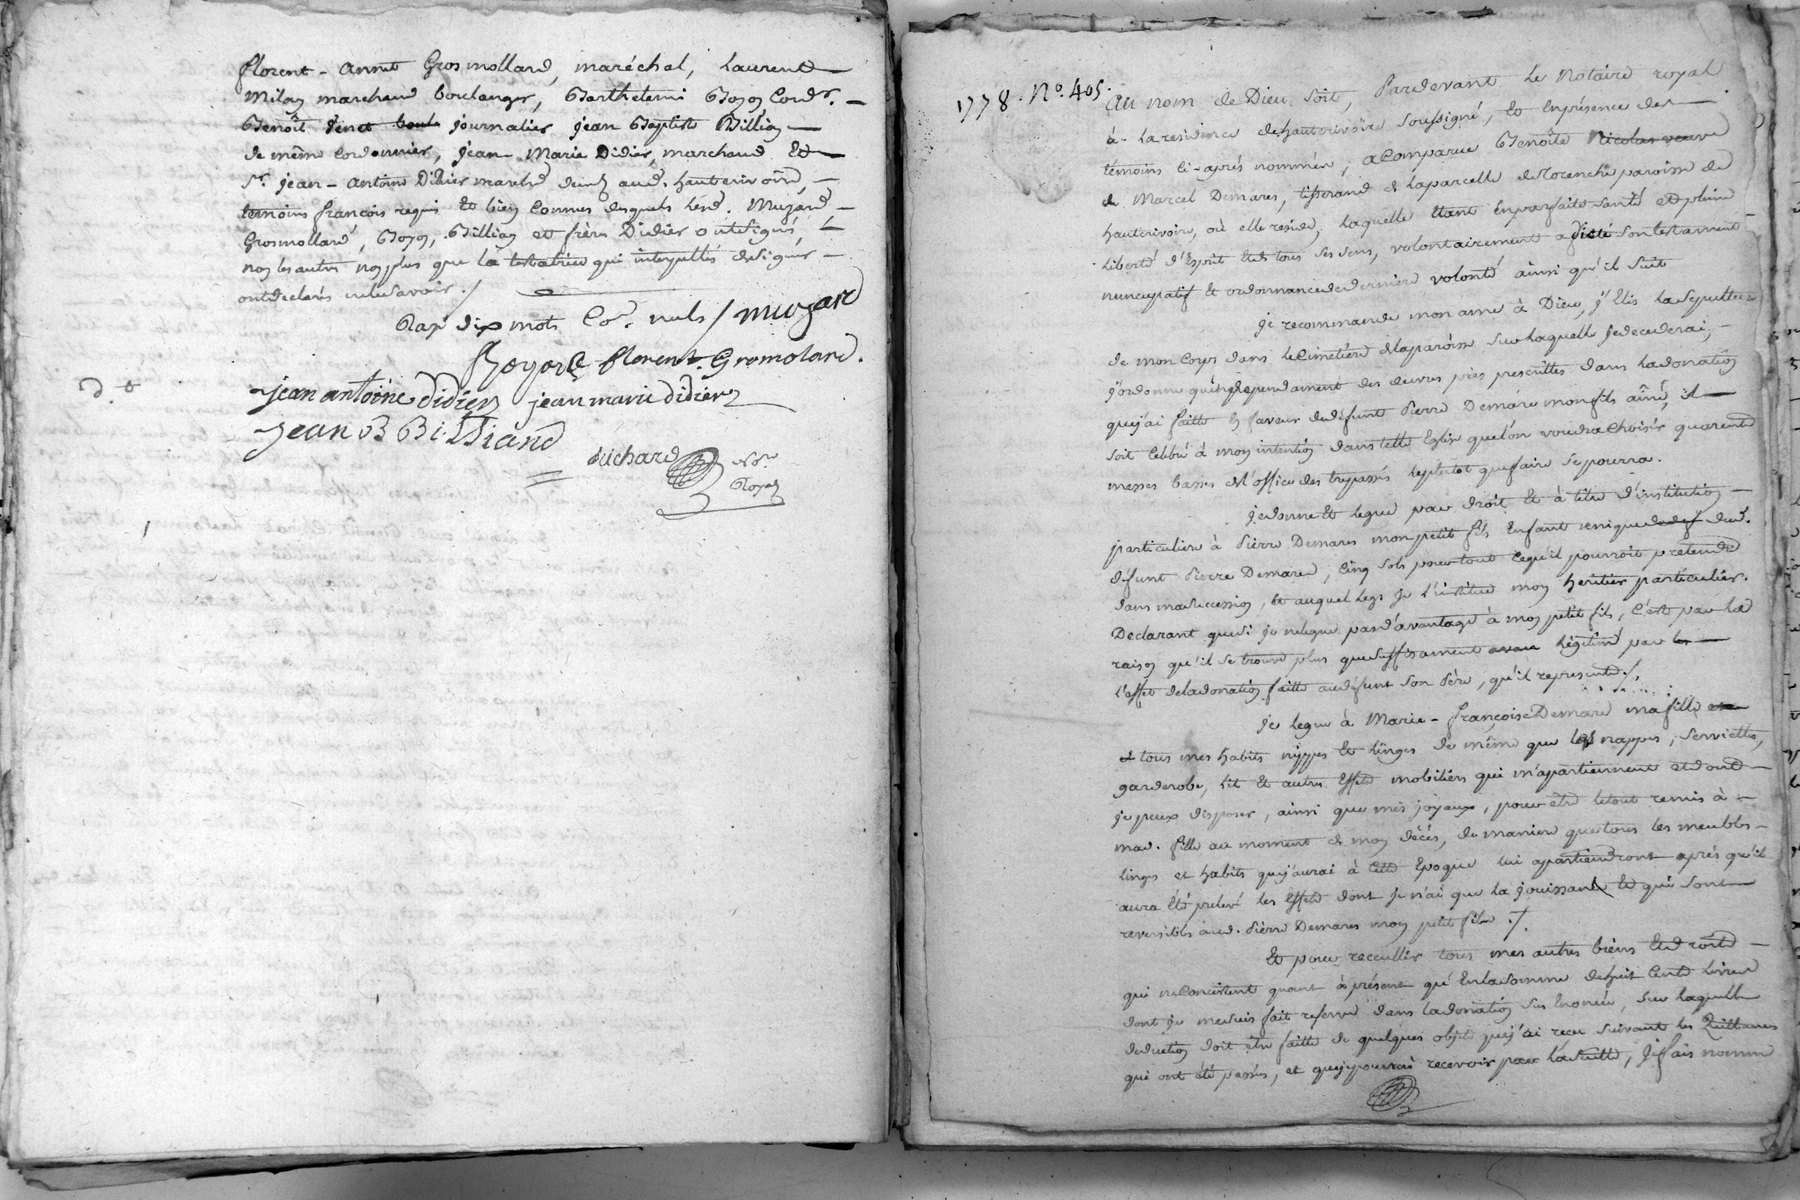 florent - annet Grosmolland, maréchal, Laurent
Milon marchand boulanger, Barthelemi Boyon Cordr. -
Benoît Vinct boula journalier jean Baptiste Billion
de même Cordonnier, Jean Marie Didier, marchand Et
Sr. jean - antoine Didier marchd aud. hauterivoire, -
témoins françois requis Et bien Connus desquels lesd. Muzard
Grosmolland, Boyon, Billion et frères Didier ont signés, &
non les autres non plus que la testatrice qui interpellés de signer -
ont déclarés ne le savoir ./
Rayé dix mots Co. nuls / muzard
Boyond florent Gromoland.
D. t
jean antoine didier jean marie didier
Jean B Billiand
duchard No.re
Royal
1778. No. 405.
Au nom de Dieu soit, Pardevant Le Notaire royal
à la residence de hauterivoire soussigné, Et En présence des
témoins ci-après nommés, a Comparue Benoîte Nicolas veuve
de Marcel Demares, tisserand de la parcelle de paroisse de
hauterivoire, où elle reside, laquelle Etant En parfaite santé et pleine
liberté d'Esprit Et de tous ses sens, volontairement a dicté son testament
nuncupatif Et ordonnance de derniere volonté ainsi qu'il suit
je recommande mon ame à Dieu, j'Elis la sepulture
de mon Corps dans le Cimetière de la paroisse sur laquelle je decederai, -
j'ordonne qu'independament des œuvres pies prescrittes dans la donation
que j'ai faitte En faveur de defunt Pierre Demare mon fils aîné, il
soit Celebré à mon intention dans telle Eglise que l'on voudra Choisir quarente
messes basses de l'office des trepassés le plutot que faire se pourra.
je donne Et legue par droit Et à titre d'institution -
particuliere à Pierre Demares mon petit fils Enfant unique de def dud.
defunt Pierre Demare, Cinq sols pour tout Ce qu'il pourroit pretendre
dans ma succession, Et auquel legs je l'institue mon heritier particulier.
Declarant que si je ne legue pas d'avantage à mon petit fils, C'est par la
raison qu'il se trouve plus que suffisament avan legitimé par les
l'effet de la donation faitte au defunt son Père, qu'il represente ./.
je legue à Marie - françoise Demare ma fille
& tous mes habits nippes Et linges de même que les nappes, serviettes,
garderobe, lit Et autres Effets mobiliers qui m'apartiennent et dont -
je peux disposer, ainsi que mes joyaux, pour être le tout remis à -
mad. fille au moment de mon décés, de maniere que tous les meubles -
linges et habits que j'aurai à Cette Epoque lui apartiendront après qu'il
aura Eté prelevé les Effets dont je n'ai que la jouissance Et qui sont
reversibles aud. Pierre Demares mon petit fils ./.
Et pour receuillir tous mes autres biens Et droits -
qui ne Consistent quant à présent qu'En la somme de huit Cents livres
dont je me suis fait reserve dans la donation sus Enoncée, sur laquelle
deduction doit être faitte de quelques objets que j'ai recu suivant les Quittances
qui ont été passées, et que je pourrai recevoir pour la suitte, je fais nomme